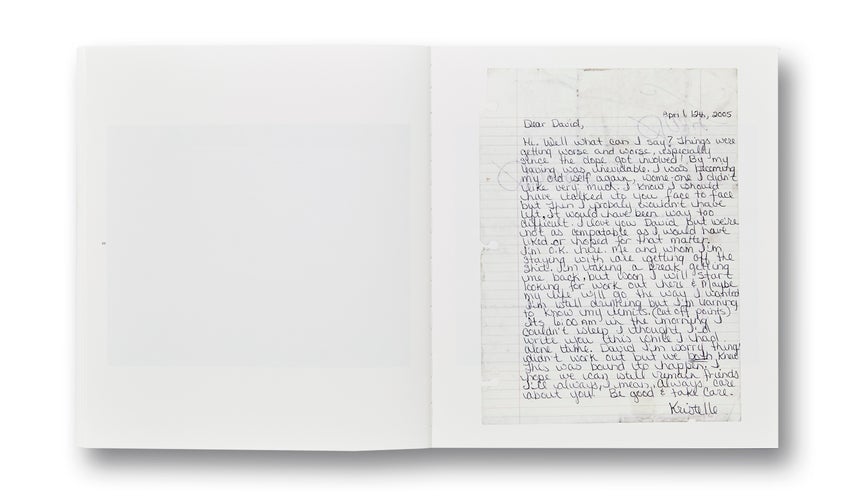 April 12th, 2005
Dear David,
Hi. Well what can I say? Things were
getting worse and worse, especially
since the dope got involved! By my
leaving was inevidable. I was becoming
my old self again, some-one I didn't
like very much. I know I should
have talked to you face to face
but then I probaly wouldn't have
left, it would have been way too
difficult. I love you David but we're
not as compatable as I would have
liked or hoped for that matter.
I'm o.k. here. me and whom I'm
staying with are getting off the
shit. I'm taking a break getting
me back, but soon I will start
looking for work out here & maybe
my life will go the way I wanted
I'm still drinking but I'm learning
to know my limits. (cut off points)
It's 6:00 Am in the morning I
couldn't sleep I thought I'd
write you this while I had
alone time. David I'm sorry things
didn't work out but we both knew
this was bound to happen. I
hope we can still remain friends
I'll always, I mean, Always, care
about you! Be good & take care.
Kristelle